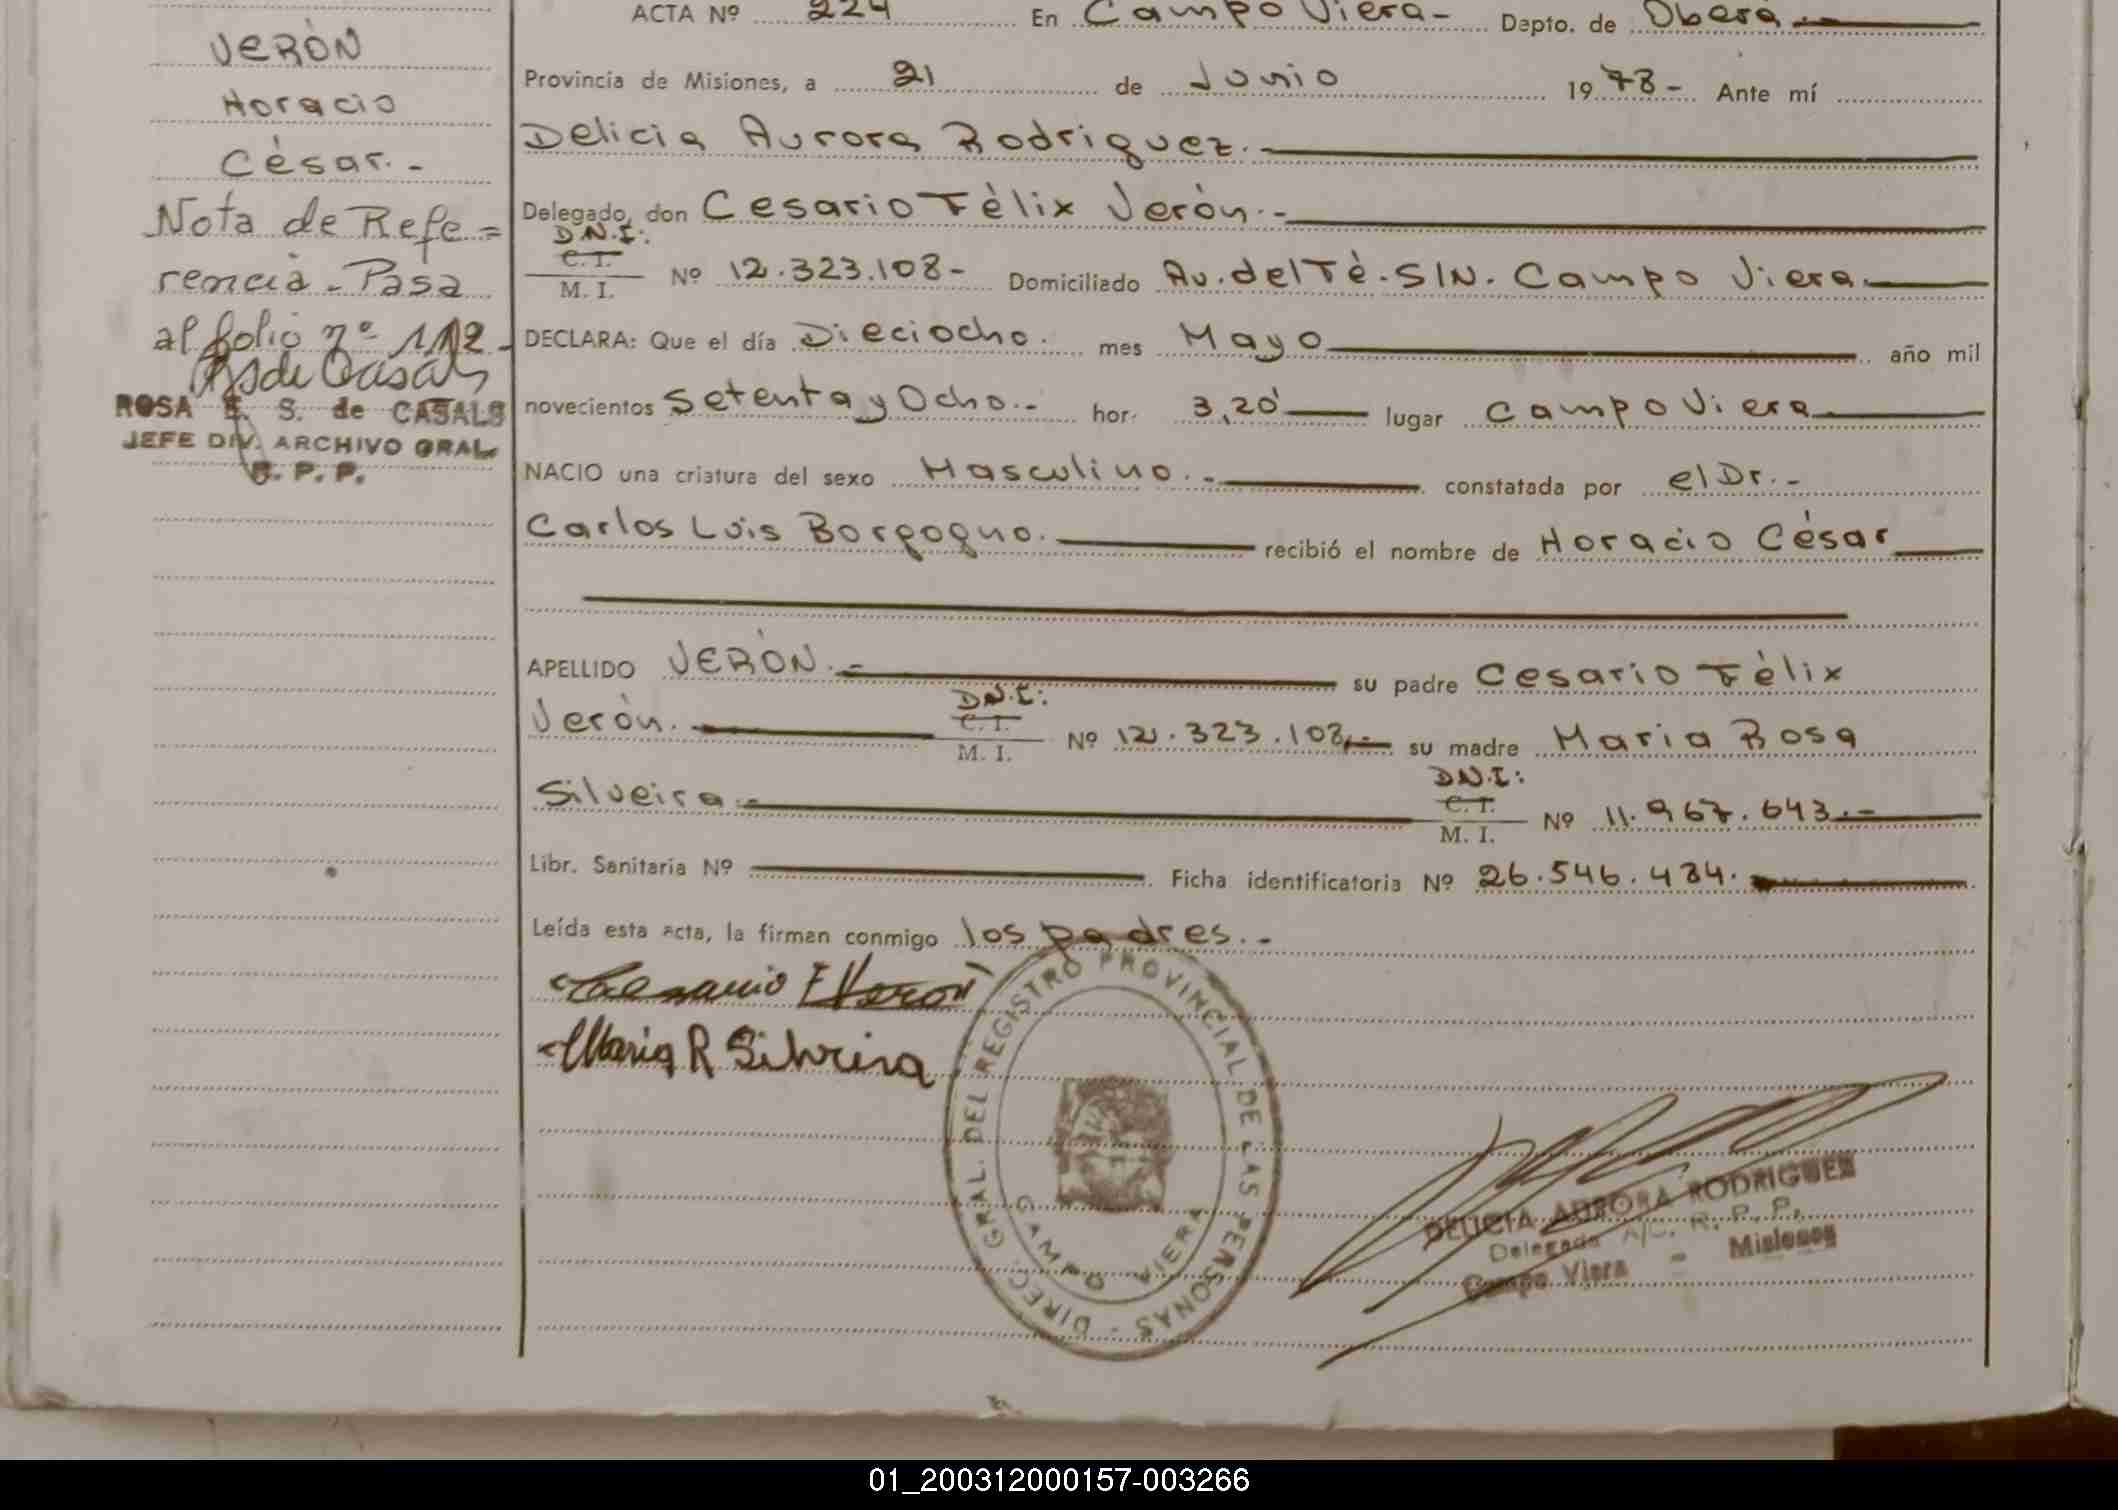 VERÓN
Horacio
César.-
Nota de Refe=
rencia - Pasa
al folio nº 112-
ROSA E. S. de CASALS
JEFE DIV. ARCHIVO GRAL.
R. P. P.
ACTA Nº 224 En Campo Viera- Depto. de Oberá.
Provincia de Misiones, a 21 de Junio 1978- Ante mí
Delicia Aurora Rodriguez.
Delegado, don Cesario Félix Verón.-
D.N.I:
C.I.
M. I. Nº 12.323.108- Domiciliado Av. del Té. S/N. Campo Viera.
DECLARA: Que el día Dieciocho. mes Mayo año mil
novecientos Setenta y Ocho.- hor. 3,20' lugar Campo Viera
NACIO una criatura del sexo Masculino.- constatada por el Dr.-
Carlos Luis Borgogno. recibió el nombre de Horacio César
APELLIDO VERÓN.- su padre Cesario Félix
Verón. D.N.I: C.I. M. I. Nº 12.323.108.- su madre Maria Rosa
Silveira.- D.N.I: C.I. M. I. Nº 11.967.643.-
Libr. Sanitaria Nº Ficha identificatoria Nº 26.546.484.
Leída esta acta, la firman conmigo los padres.-
Cesario F Verón
Maria R Silveira
DIREC. GRAL. DEL REGISTRO PROVINCIAL DE LAS PERSONAS -
CAMPO VIERA
DELICIA AURORA RODRIGUEZ
Delegada A/C. R. P. P.
Campo Viera - Misiones
01_200312000157-003266